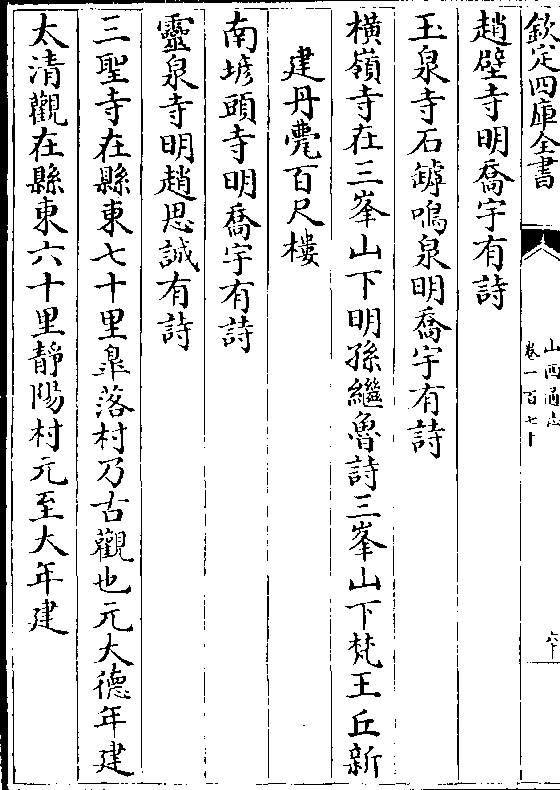 欽定四庫全書
山西通志
卷一百七十
六十
趙壁寺明喬宇有詩
玉泉寺石罅鳴泉明喬宇有詩
橫嶺寺在三峯山下明孫繼魯詩三峯山下梵王丘新
建丹甍百尺樓
南墋頭寺明喬宇有詩
靈泉寺明趙思誠有詩
三聖寺在縣東七十里臯落村乃古觀也元大德年建
太清觀在縣東六十里靜陽村元至大年建